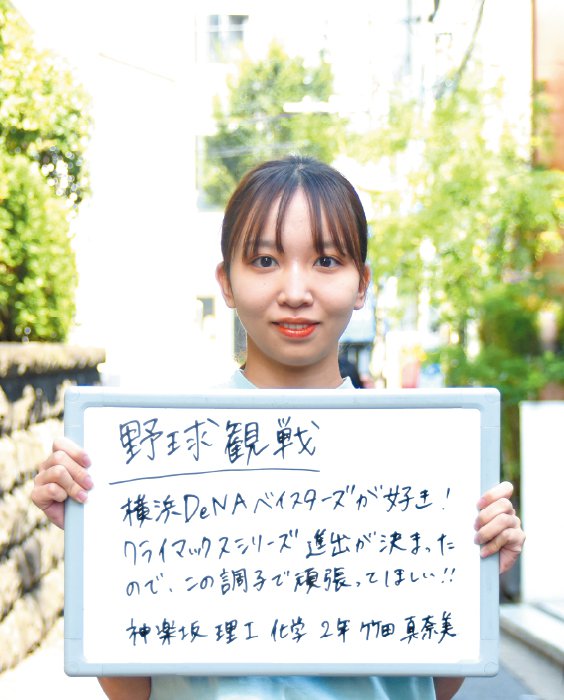 野球観戦
横浜DeNAベイスターズが好き!
クライマックスシリーズ進出が決まった
ので、この調子で頑張ってほしい!!
神楽坂 理工 化学 2年 竹田 真奈美